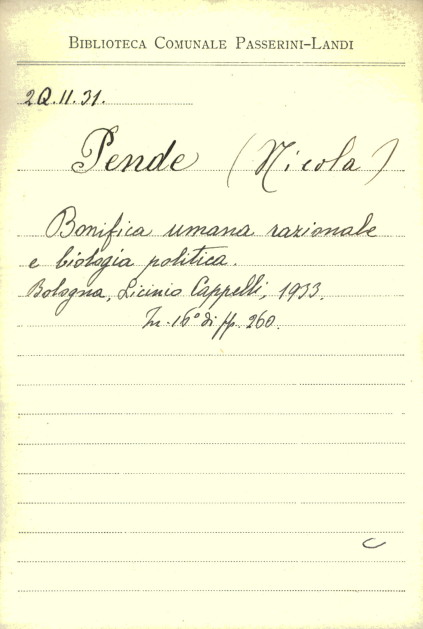 BIBLIOTECA COMUNALE PASSERINI-LANDI
2Q.II.31.
Pende (Nicola)
Bonifica umana razionale
e biologia politica.
Bologna, Licinio Cappelli, 1933.
In-16° di pp. 260.
C